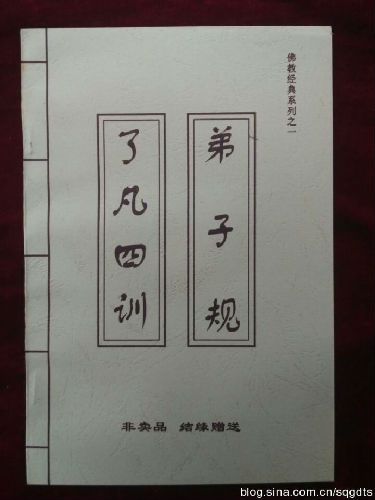 佛教经典系列之一
弟子规
了凡四训
非卖品 结缘赠送
blog.sina.com.cn/sqgdts